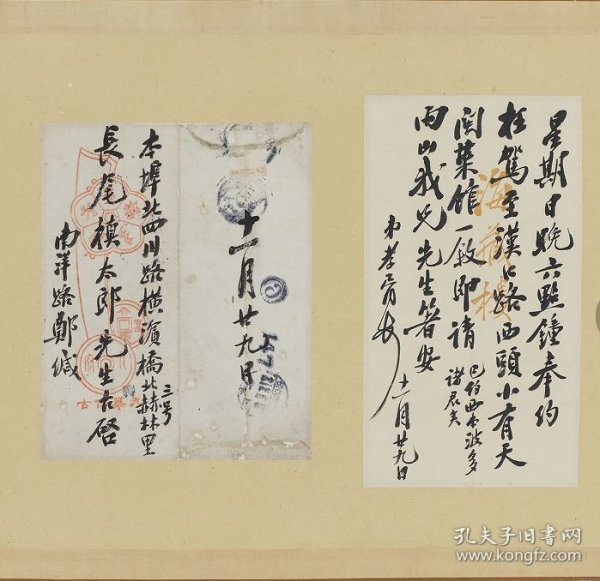 星期日晚六點鐘奉約
枉駕至漢口路西頭小有天
閩菜館一敘即請
已約西本波多
諸君矣
雨山我兄先生箸安
弟孝胥頓
十一月廿九日
海藏樓
十一月廿九日
本埠北四川路橫濱橋北赫林里
三号
長尾槙太郎先生台啓
南洋路鄭緘
孔夫子旧书网
www.kongfz.com